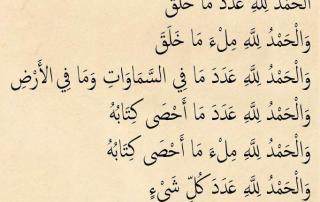 الْحَمْدُ لِلَّهِ عَدَدَ مَا خَلَقَ
وَالْحَمْدُ لِلَّهِ مِلْءَ مَا خَلَقَ
وَالْحَمْدُ لِلَّهِ عَدَدَ مَا فِي السَّمَاوَاتِ وَمَا فِي الْأَرْضِ
وَالْحَمْدُ لِلَّهِ عَدَدَ مَا أَحْصَى كِتَابُهُ
وَالْحَمْدُ لِلَّهِ مِلْءَ مَا أَحْصَى كِتَابُهُ
وَالْحَمْدُ لِلَّهِ عَدَدَ كُلِّ شَيْءٍ